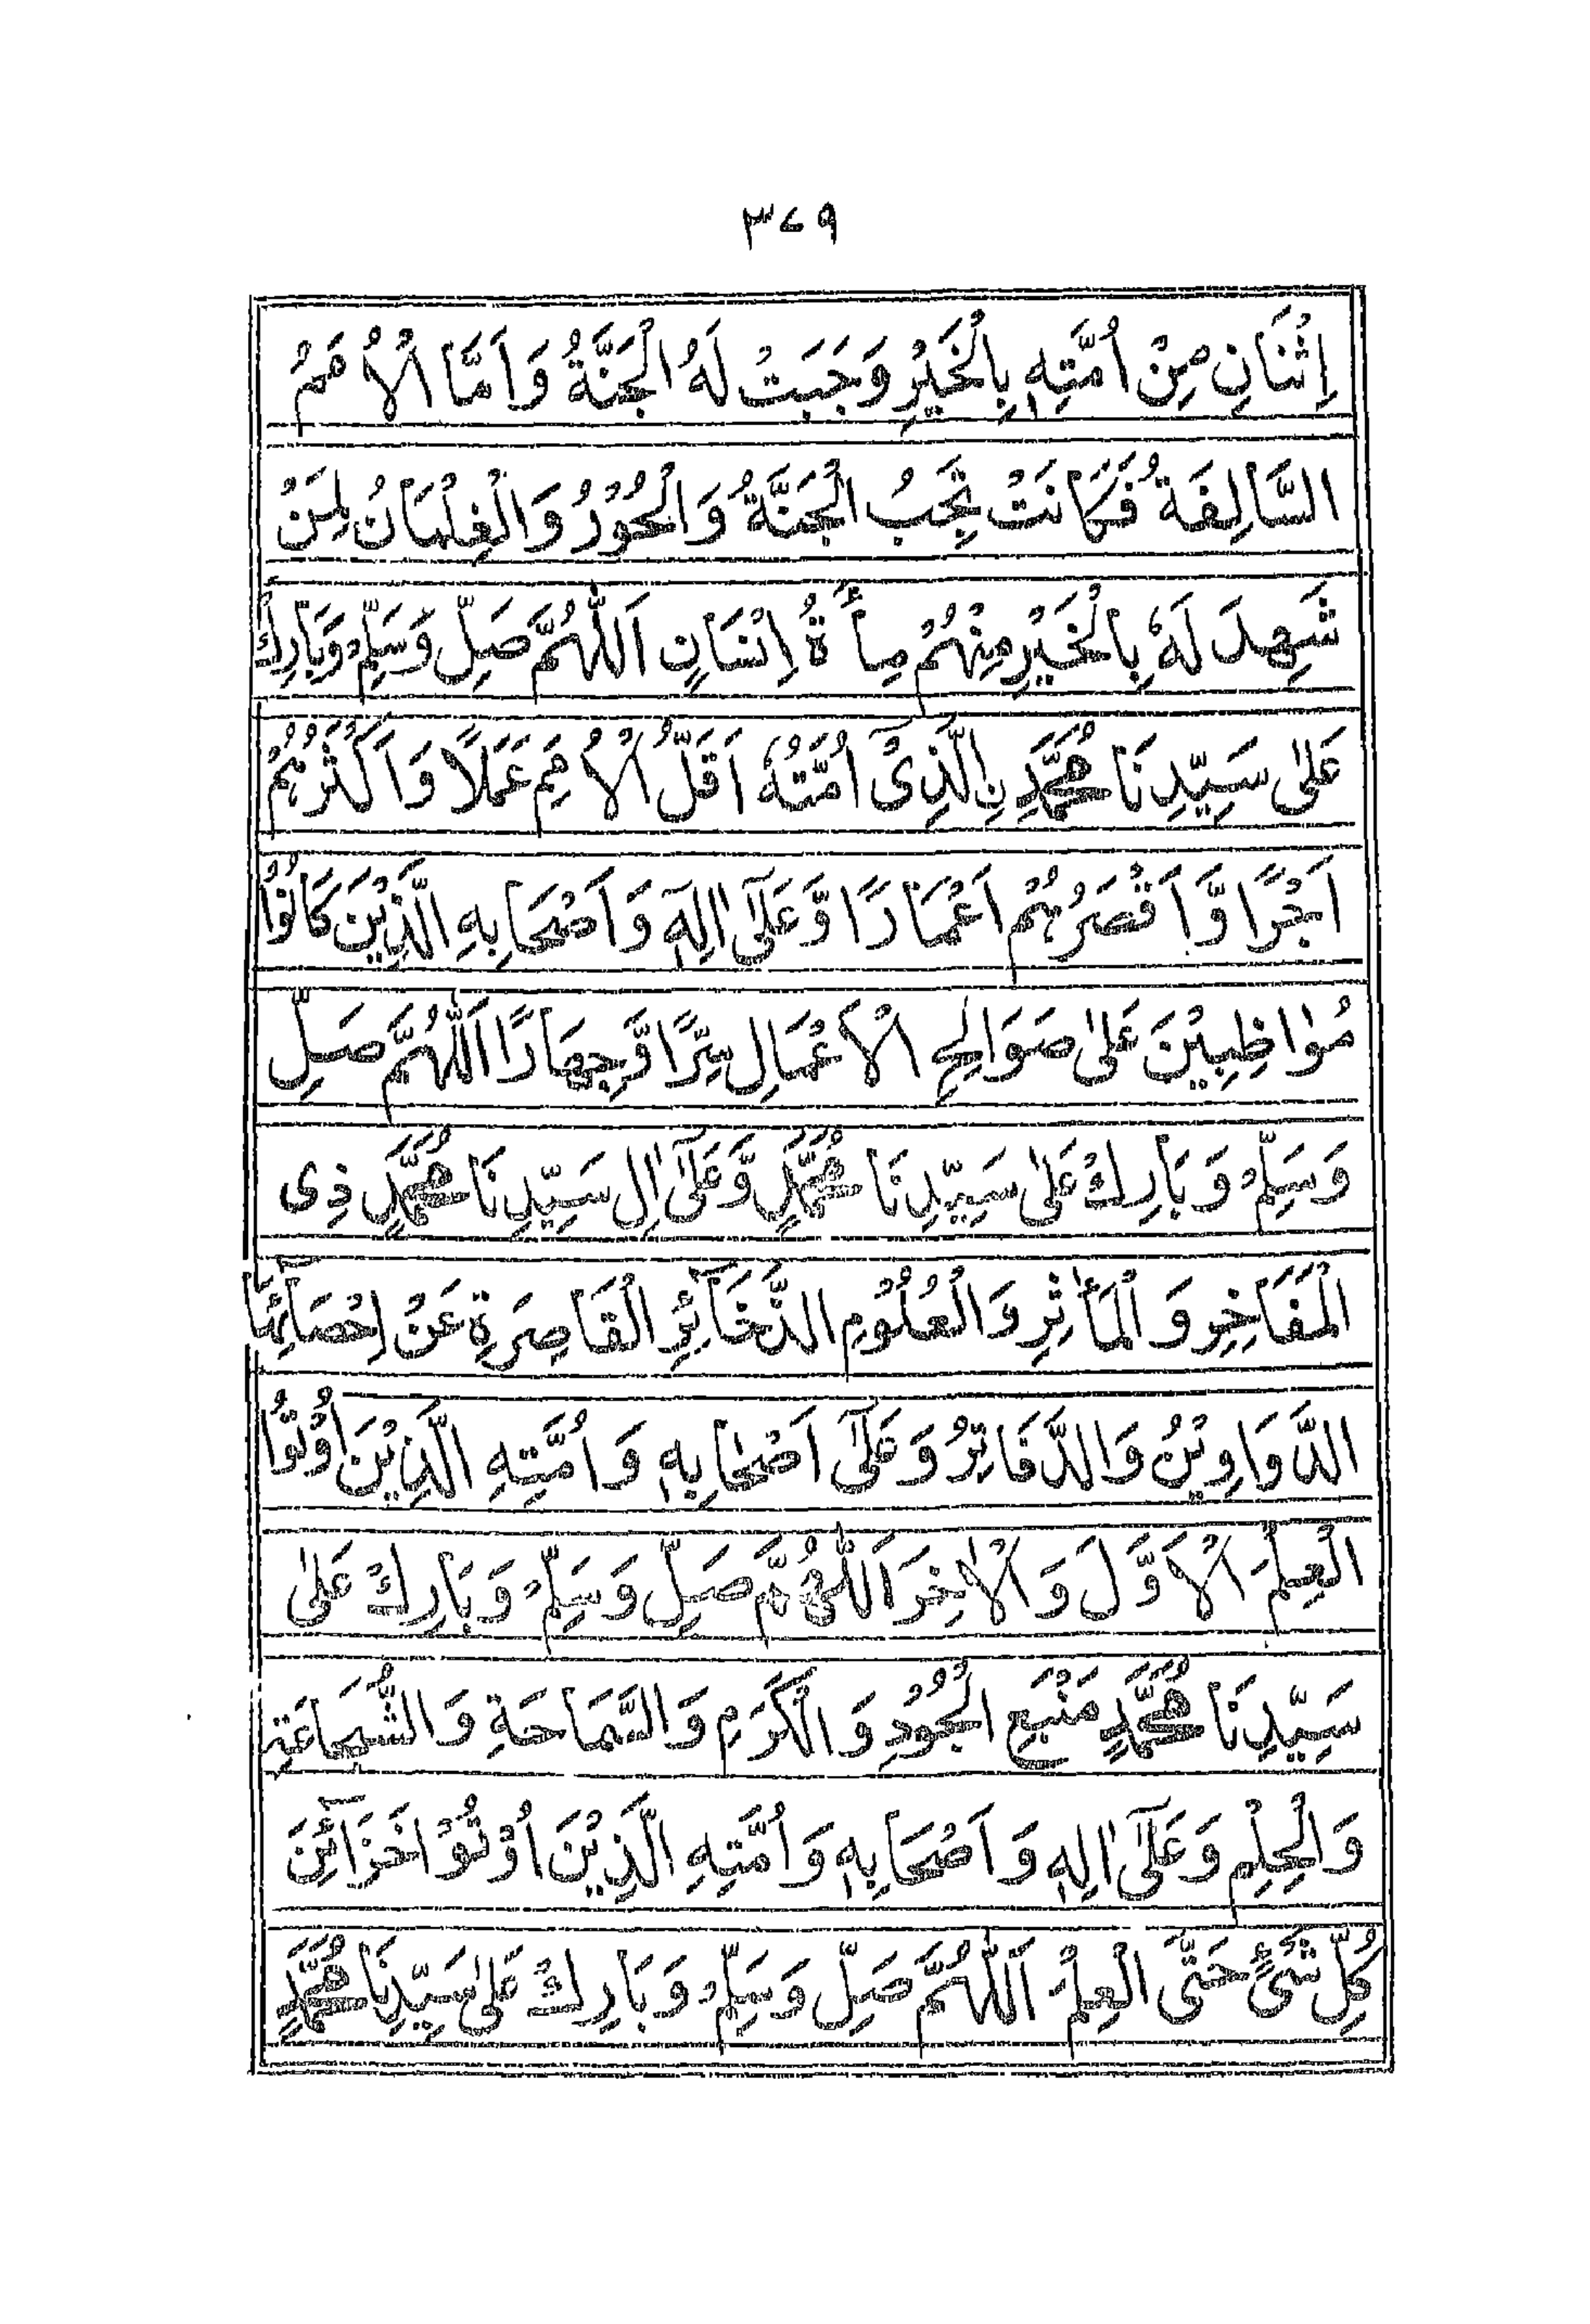 ٣٤٩
اِثْنَانِ مِنْ اُمَّتِهٖ بِالْخَيْرِ وَجَبَتْ لَهُ الْجَنَّةُ وَاَمَّا الْاُمَمُ
السَّالِفَةُ فَكَانَتْ تَجِبُ الْجَنَّةُ وَالْحُوْرُ وَالْغِلْمَانُ لِمَنْ
شَهِدَ لَهٗ بِالْخَيْرِ مِنْهُمْ مِأَةُ اِنْسَانٍ اَللّٰهُمَّ صَلِّ وَسَلِّمْ وَبَارِكْ
عَلٰى سَيِّدِنَا مُحَمَّدِنِ الَّذِىْ اُمَّتُهٗ اَقَلُّ الْاُمَمِ عَمَلًا وَاَكْثَرُهُمْ
اَجْرًا وَّاَقْصَرُهُمْ اَعْمَارًا وَّعَلٰٓى اٰلِهٖ وَاَصْحَابِهِ الَّذِيْنَ كَانُوْا
مُوٰاظِبِيْنَ عَلٰى صَوَالِحِ الْاَعْمَالِ سِرًّا وَّجِهَارًا اَللّٰهُمَّ صَلِّ
وَسَلِّمْ وَبَارِكْ عَلٰى سَيِّدِنَا مُحَمَّدٍ وَّعَلٰٓى اٰلِ سَيِّدِنَا مُحَمَّدٍ ذِى
الْمَفَاخِرِ وَالْمَأٰثِرِ وَالْعُلُوْمِ الذَّخَآئِرِ الْقَاصِرَةِ عَنْ اِحْصَآئِهَا
الدَّوَاوِيْنُ وَالدَّفَاتِرُ وَعَلٰٓى اَصْحٰابِهٖ وَاُمَّتِهِ الَّذِيْنَ اُوْتُوا
الْعِلْمَ الْاَوَّلَ وَالْاٰخِرَ اَللّٰهُمَّ صَلِّ وَسَلِّمْ وَبَارِكْ عَلٰى
سَيِّدِنَا مُحَمَّدٍ مَنْبَعِ الْجُوْدِ وَالْكَرَمِ وَالسَّمَاحَةِ وَالشُّجَاعَةِ
وَالْحِلْمِ وَعَلٰٓى اٰلِهٖ وَاَصْحَابِهٖ وَاُمَّتِهِ الَّذِيْنَ اُوْتُوْا خَزَآئِنَ
كُلِّ شَىْءٍ حَتَّى الْعِلْمَ اَللّٰهُمَّ صَلِّ وَسَلِّمْ وَبَارِكْ عَلٰى سَيِّدِنَا مُحَمَّدٍ